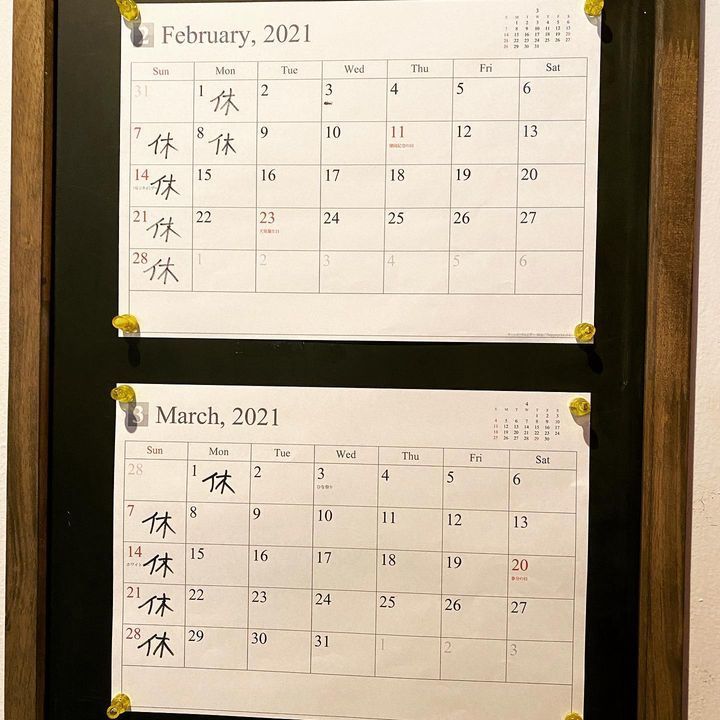 2 February, 2021
Sun Mon Tue Wed Thu Fri Sat
31 1 休 2 3 4 5 6
7 休 8 休 9 10 11 12 13
建国記念の日
14 休 15 16 17 18 19 20
21 休 22 23 24 25 26 27
天皇誕生日
28 休 1 2 3 4 5 6
3 March, 2021
Sun Mon Tue Wed Thu Fri Sat
28 1 休 2 3 4 5 6
ひな祭り
7 休 8 9 10 11 12 13
14 休 15 16 17 18 19 20
春分の日
21 休 22 23 24 25 26 27
28 休 29 30 31 1 2 3